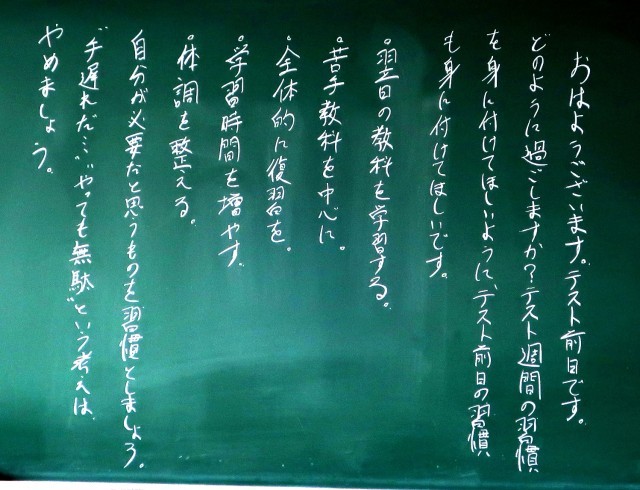 おはようございます。テスト前日です。
どのように過ごしますか？テスト週間の習慣
を身に付けてほしいように、テスト前日の習慣
も身に付けてほしいです。
・翌日の教科を学習する。
・苦手教科を中心に。
・全体的に復習を。
・学習時間を増やす。
・体調を整える。
自分が必要だと思うものを習慣としましょう。
“手遅れだ…”“やっても無駄”という考えは、
やめましょう。